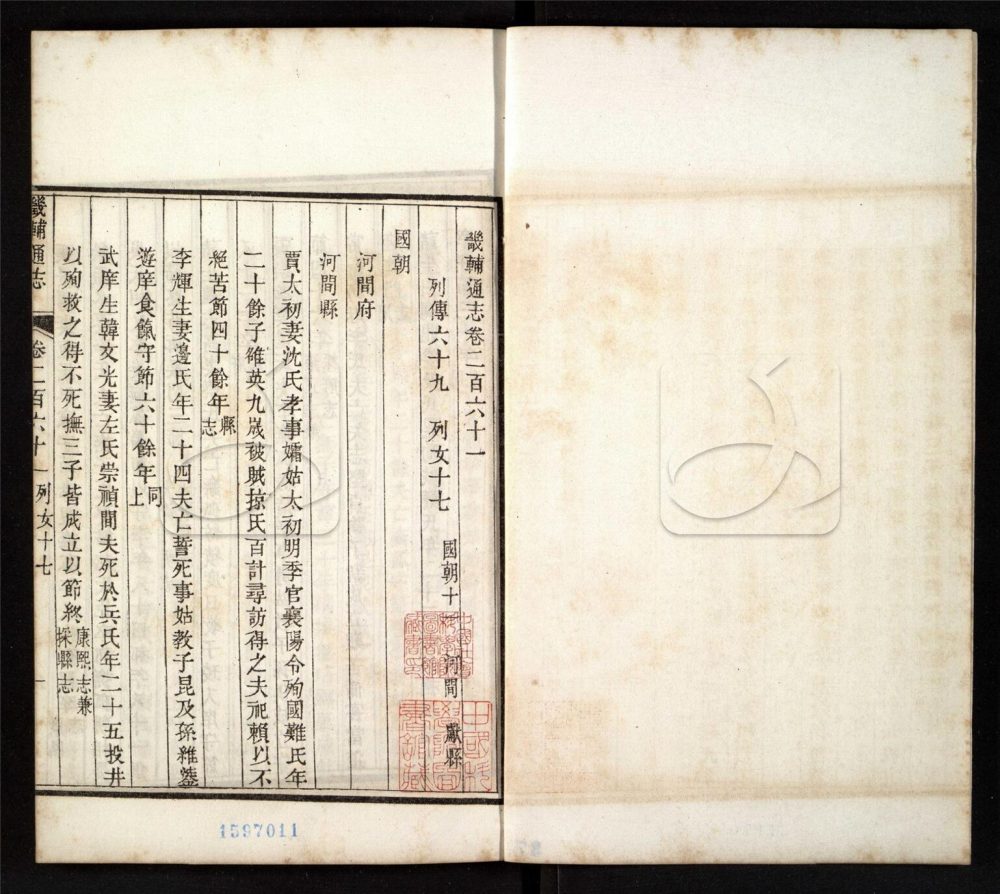 畿輔通志卷二百六十一
列傳六十九 列女十七 國朝十一 河間 獻縣
國朝
河間府
河間縣
賈太初妻沈氏孝事孀姑太初明季官襄陽令殉國難氏年
二十餘子維英九歲被賊掠氏百計尋訪得之夫祀賴以不
絕苦節四十餘年縣志
李輝生妻邊氏年二十四夫亡誓死事姑教子昆及孫維蓥
遊庠食餼守節六十餘年同上
武庠生韓文光妻左氏崇禎間夫死於兵氏年二十五投井
以殉救之得不死撫三子皆成立以節終康熙志兼採縣志
畿輔通志 卷二百六十一 列女十七 一
1597011